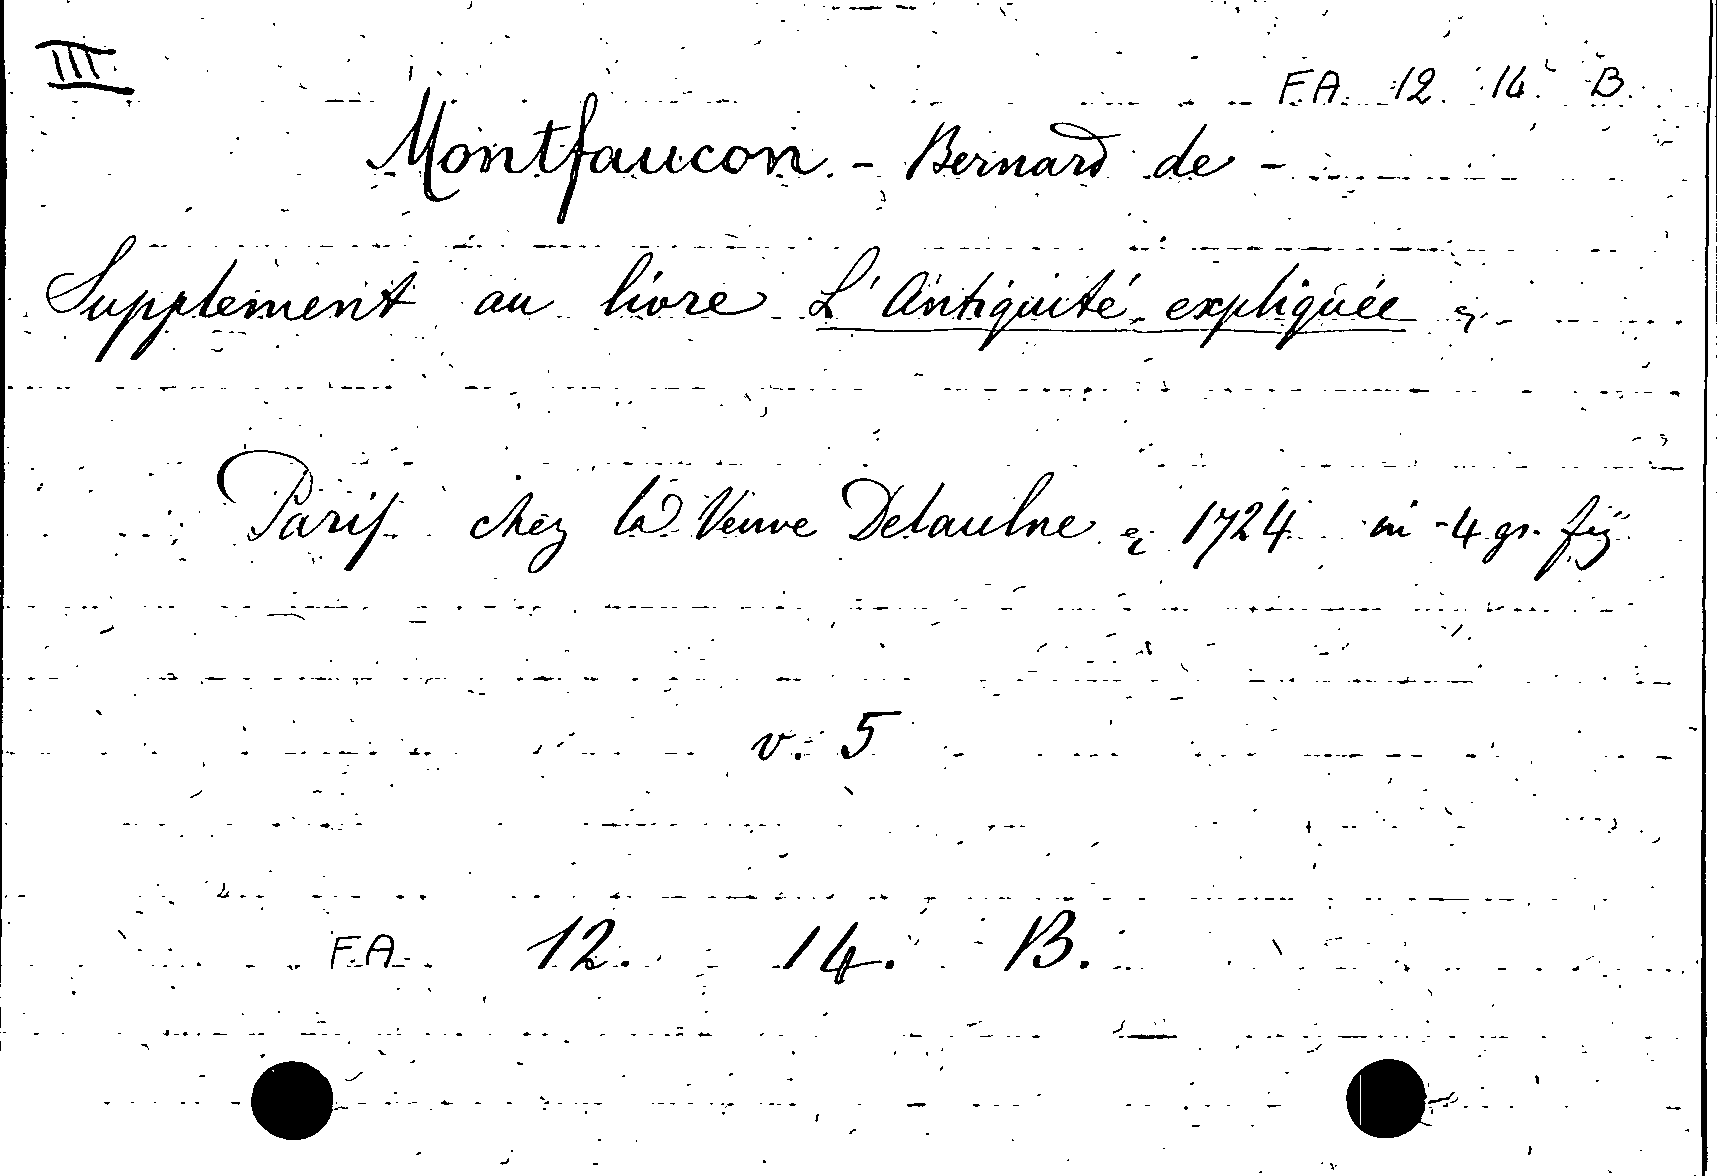 III.
F.A. 12. 14. B.
Montfaucon. - Bernard de -
Supplement au livre L'Antiquité expliquée
Paris chez la Veuve Delaulne 1724 in-4 gr. fig
v. 5
F.A. 12. 14. B.